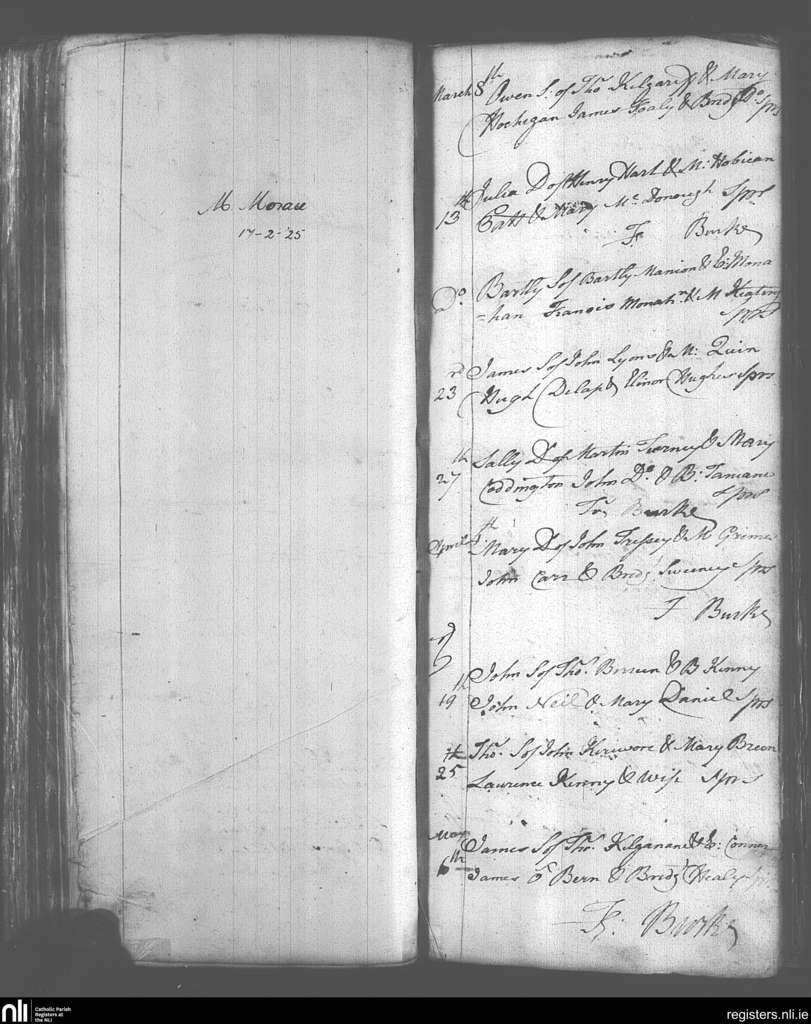 M. Morace
17-2-25
March 8th Owen S. of Thos Kilgariff & Mary
Hochegan James Foaly & Bridg Do Sprs
13th Julia D of Henry Hart & M: Hobican
Patt & Mary Mc Donough Sprs
Fr Burke
Do Bartly S of Bartly Manion & E: Mona
=han Francis Monahn & M Keating
Sprs
23rd James S of John Lyons & M: Quin
Hugh Delap & Elinor Hughes Sprs
27th Sally D of Martin Tierney & Mary
Coddington John Do & B: Tamiane
Sprs
Fr Burke
April 5th Mary D of John Tressey & M Grimes
John Carr & Bridg Sweeney Sprs
F Burke
19th John S of Thos Breeen & B Kenny
John Neil & Mary Daniel Sprs
25th Thos S of John Kirwore & Mary Breen
Laurence Kenny & Wife Sprs
May 6th James S of Thos Kilganane & E: Connor
James O Bern & Bridg Healy
Fr: Burke
nli
Catholic Parish
Registers at
the NLI
registers.nli.ie